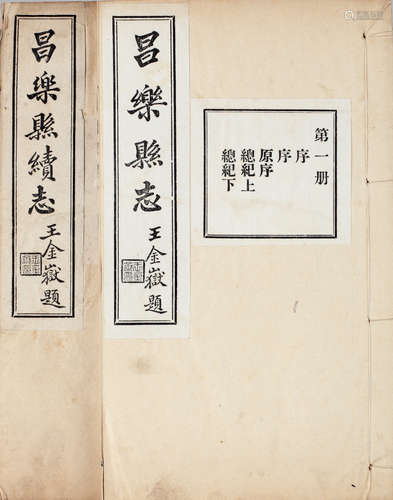 昌樂縣續志
王金嶽題
昌樂縣志
王金嶽題
第一册
序
序
原序
總紀上
總紀下